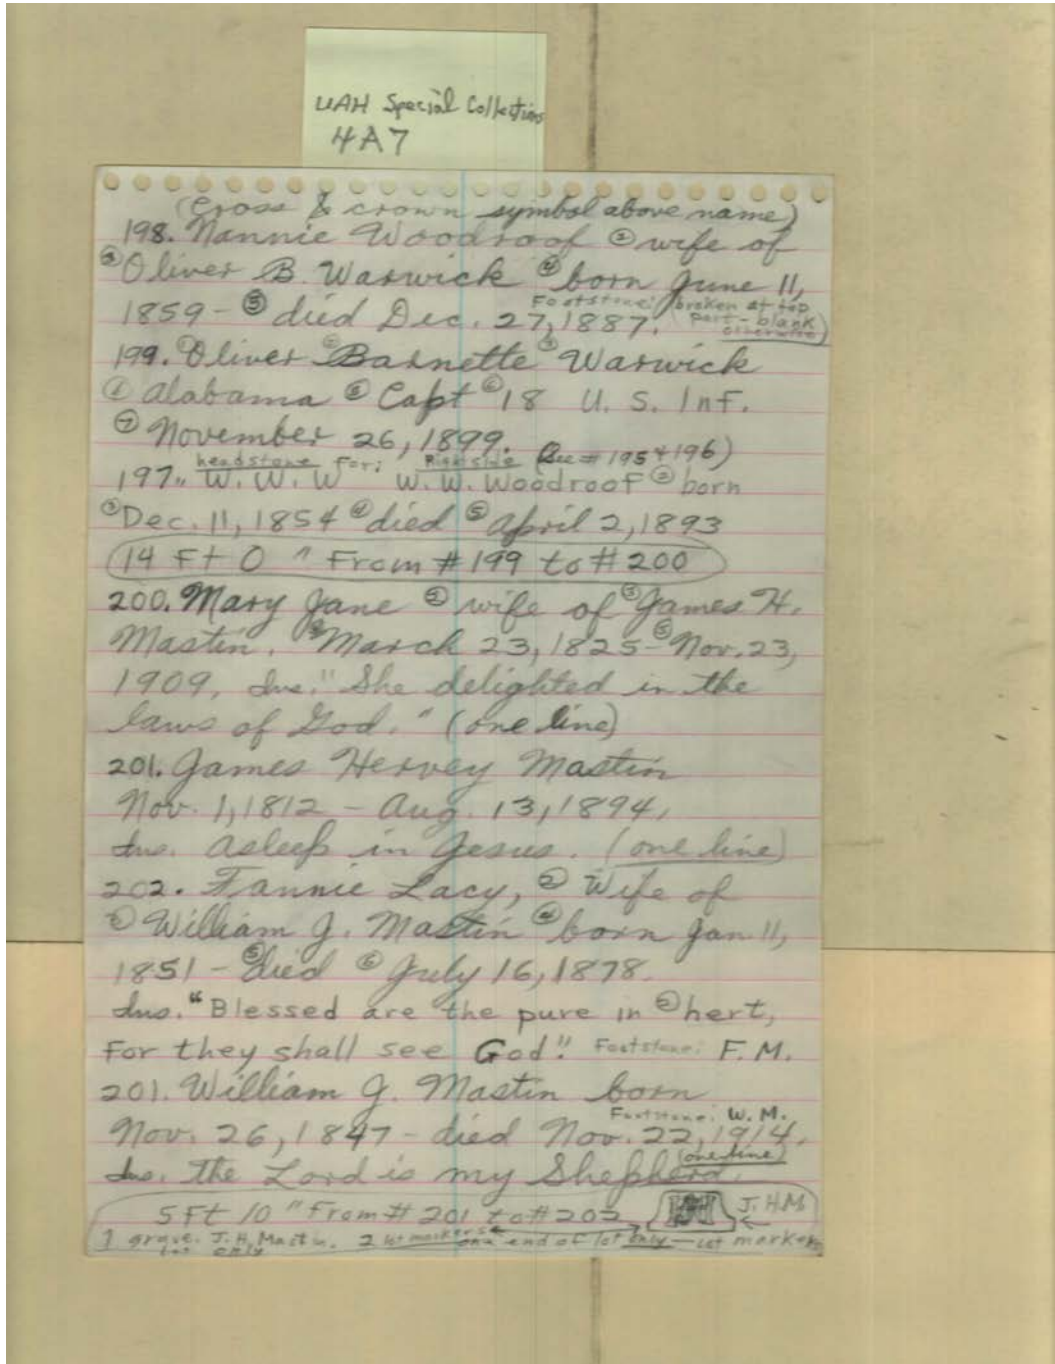 UAH Special Collections
4A7
(Cross & crown symbol above name)
198. Nannie Woodroof ② wife of
③ Oliver B. Warwick ④ born June 11,
1859 - ⑤ died Dec. 27, 1887. Footstone: (broken at top part - blank otherwise)
199. ① Oliver ② Barnette ③ Warwick
④ Alabama ⑤ Capt ⑥ 18 U. S. Inf.
⑦ November 26, 1899. (See # 195 & 196)
197. headstone W. W. W For: Right side W. W. Woodroof ② born
③ Dec. 11, 1854 ④ died ⑤ April 2, 1893
14 Ft 0 " From # 199 to # 200
200. Mary Jane ② wife of ③ James H.
Mastin. ④ March 23, 1825 - ⑤ Nov. 23,
1909, Ins. "She delighted in the
laws of God." (one line)
201. James Hervey Mastin
Nov. 1, 1812 - Aug. 13, 1894,
Ins. Asleep in Jesus. (one line)
202. Fannie Lacy, ② Wife of
③ William J. Mastin ④ born Jan 11,
1851 - ⑤ died ⑥ July 16, 1878.
Ins. "Blessed are the pure in ② hert,
For they shall see God". Footstone: F. M.
201. William J. Mastin born
Nov. 26, 1847 - died Nov. 22, 1914. Footstone: W. M.
Ins. The Lord is my Shepherd. (one line)
5 Ft 10 " From # 201 to # 202 J. H. M.
1 grave. J. H. Mastin. 2 lot markers one end of lot only — Lot markers
lot only